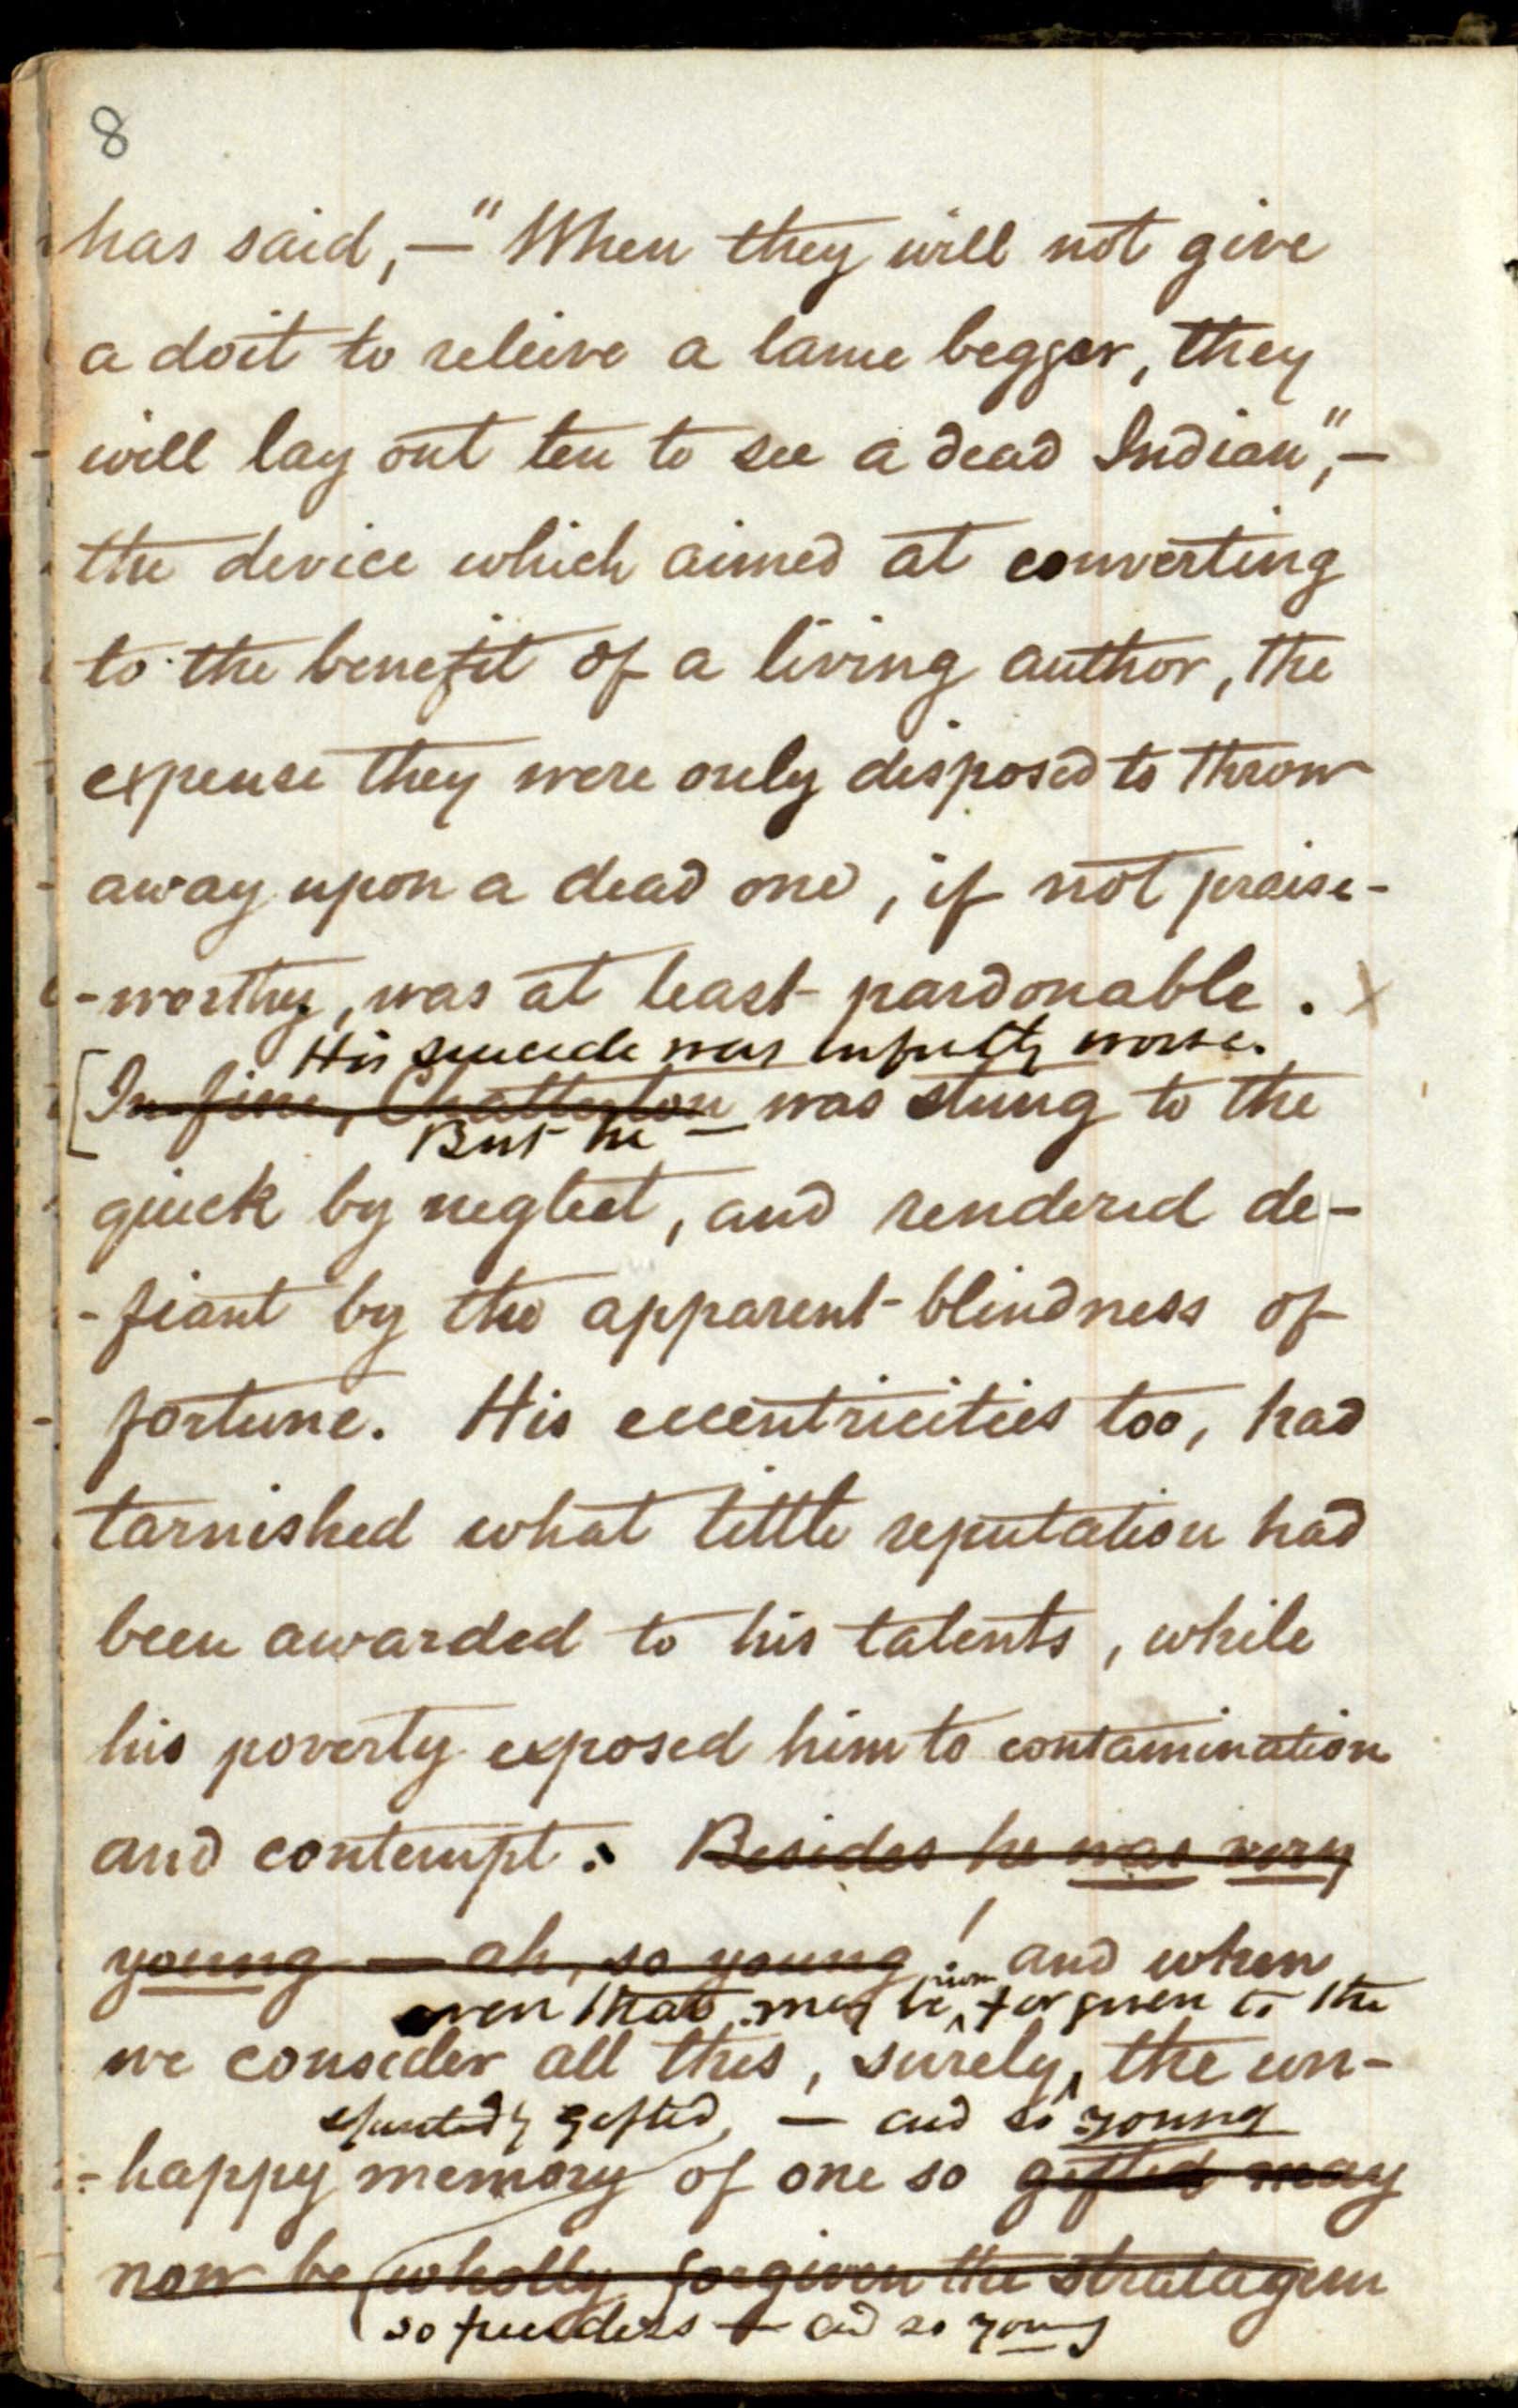 8
has said, — "When they will not give
a doit to releive a lame begger, they
will lay out ten to see a dead Indian", —
the device which aimed at converting
to the benefit of a living author, the
expense they were only disposed to throw
away upon a dead one, if not praise-
-worthy, was at least pardonable. X
His suicide was infinitely worse.
[In fine, Chatterton was stung to the
But he —
quick by neglect, and rendered de-
-fiant by the apparent blindness of
fortune. His eccentricities too, had
tarnished what little reputation had
been awarded to his talents, while
his poverty exposed him to contamination
and contempt: Besides he was very
young — ah, so young! and when
now
even that may be ^ forgiven to the
we consider all this, surely, ^ the un-
gifted, — and so young
-happy memory of one so gifted may
now be (wholly forgiven the stratagem
so friendless — and so young